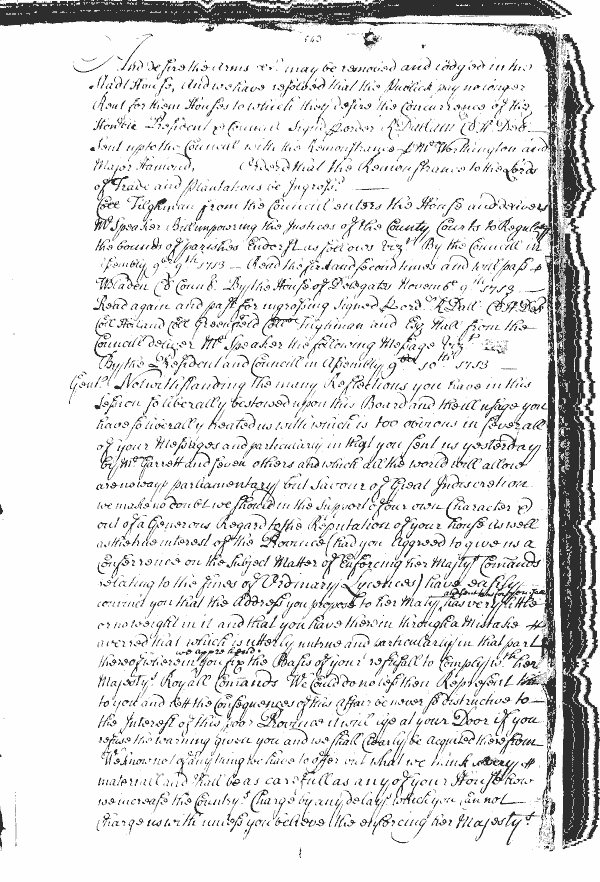 543
And desire the Arms &c. may be removed and lodged in the
Stadt House, And we have resolved that the Publick pay no longer
Rent for them Houses to which they desire the Concurrence of the
Honble President & Council Signd p order R Dallam Cl H Del.
Sent up to the Council with the Remonstrance p Mr Worthington and
Major Hamond, Orderd that the Remonstrance to the Lords
of Trade and Plantations be Ingrosst
Coll Tilghman from the Council enters the House and delivers
Mr Speaker Bill impowering the Justices of the County Courts to Regulate
the bounds of parishes Endorst as follows vizt By the Council in
Assembly 9ber 9th 1713 — Read the first and second times and will pass p
WBladen Cl Counl. By the House of Delegates Novembr 9th 1713
Read again and past for ingrossing Signed p ord R Dall Cl H Del
Coll Holland Coll Greenfield Coll Tilghman and Esq Hall from the
Council deliver Mr Speaker the following Message vizt
By the President and Council in Assembly 9ber 10th 1713
Gentn. Notwithstanding the many Reflections you have in this
Session so liberally bestowed upon this Board and the ill usage you
have so liberally treated us with which is too obvious in severall
of your Messages and particularly in that you sent us yesterday
by Mr Jarrett and seven others and which all the world will allow
are noways parliamentary but Savour of Great Indiscretion
we make no doubt we should in the Support of our own Character &
out of a Generous Regard to the Reputation of your house as well
as the true interest of the Province (had you Aggreed to give us a
Conferrence on the Subject Matter of Enforcing her Majtys Comands
relating to the fines of Ordinary Lycences) have easily
convinct you that the Address you propose to her Maty has very little
or no weight in it and that you have therein through a Mistake
averred that which is utterly untrue and particularly in that part
thereof wherein we apprehend you fix the Basis of your refusall to Comply wth her
Majestys Royall Comands We Could do no less then Represent
to you and lett the Consequences of this Affair be never so destructive to
the Interest of this poor Province it will lye at your Door if you
refuse the warning given you and we shall Clearly be Acquited therefrom
We know not of any thing we have to offer but what we think very
materiall and shall be as carefull as any of your House how
we increase the Countrys Charge by any delays which you cannot
Charge us with unless you believe the enforcing her Majestys